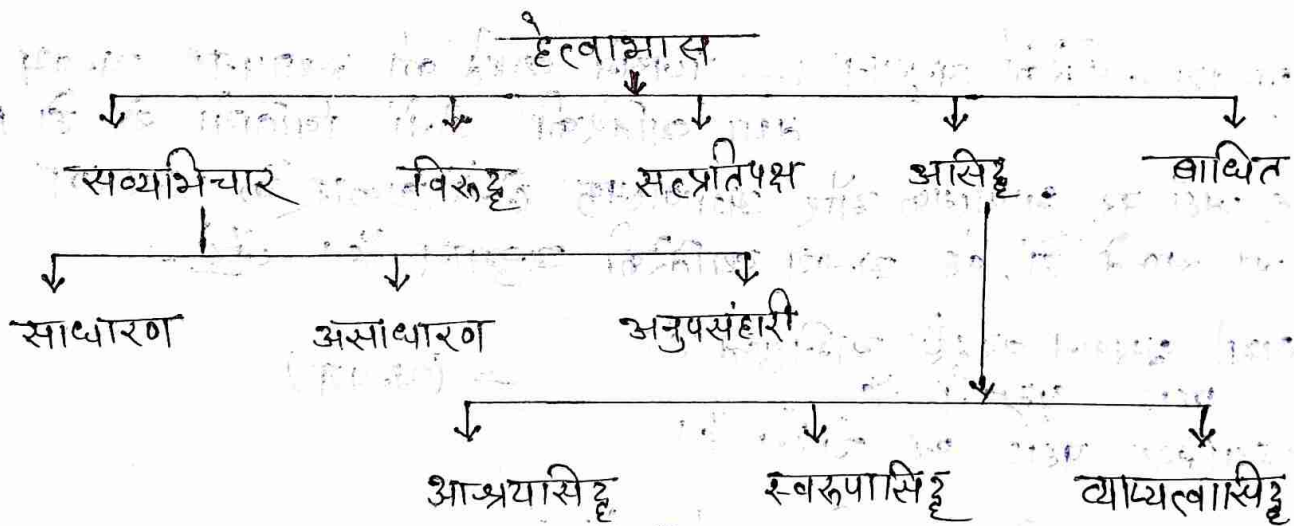 हेत्वाभास
सव्यभिचार विरुद्ध सत्प्रतिपक्ष असिद्ध बाधित
साधारण असाधारण अनुपसंहारी
आश्रयासिद्ध स्वरूपासिद्ध व्याप्यत्वासिद्ध